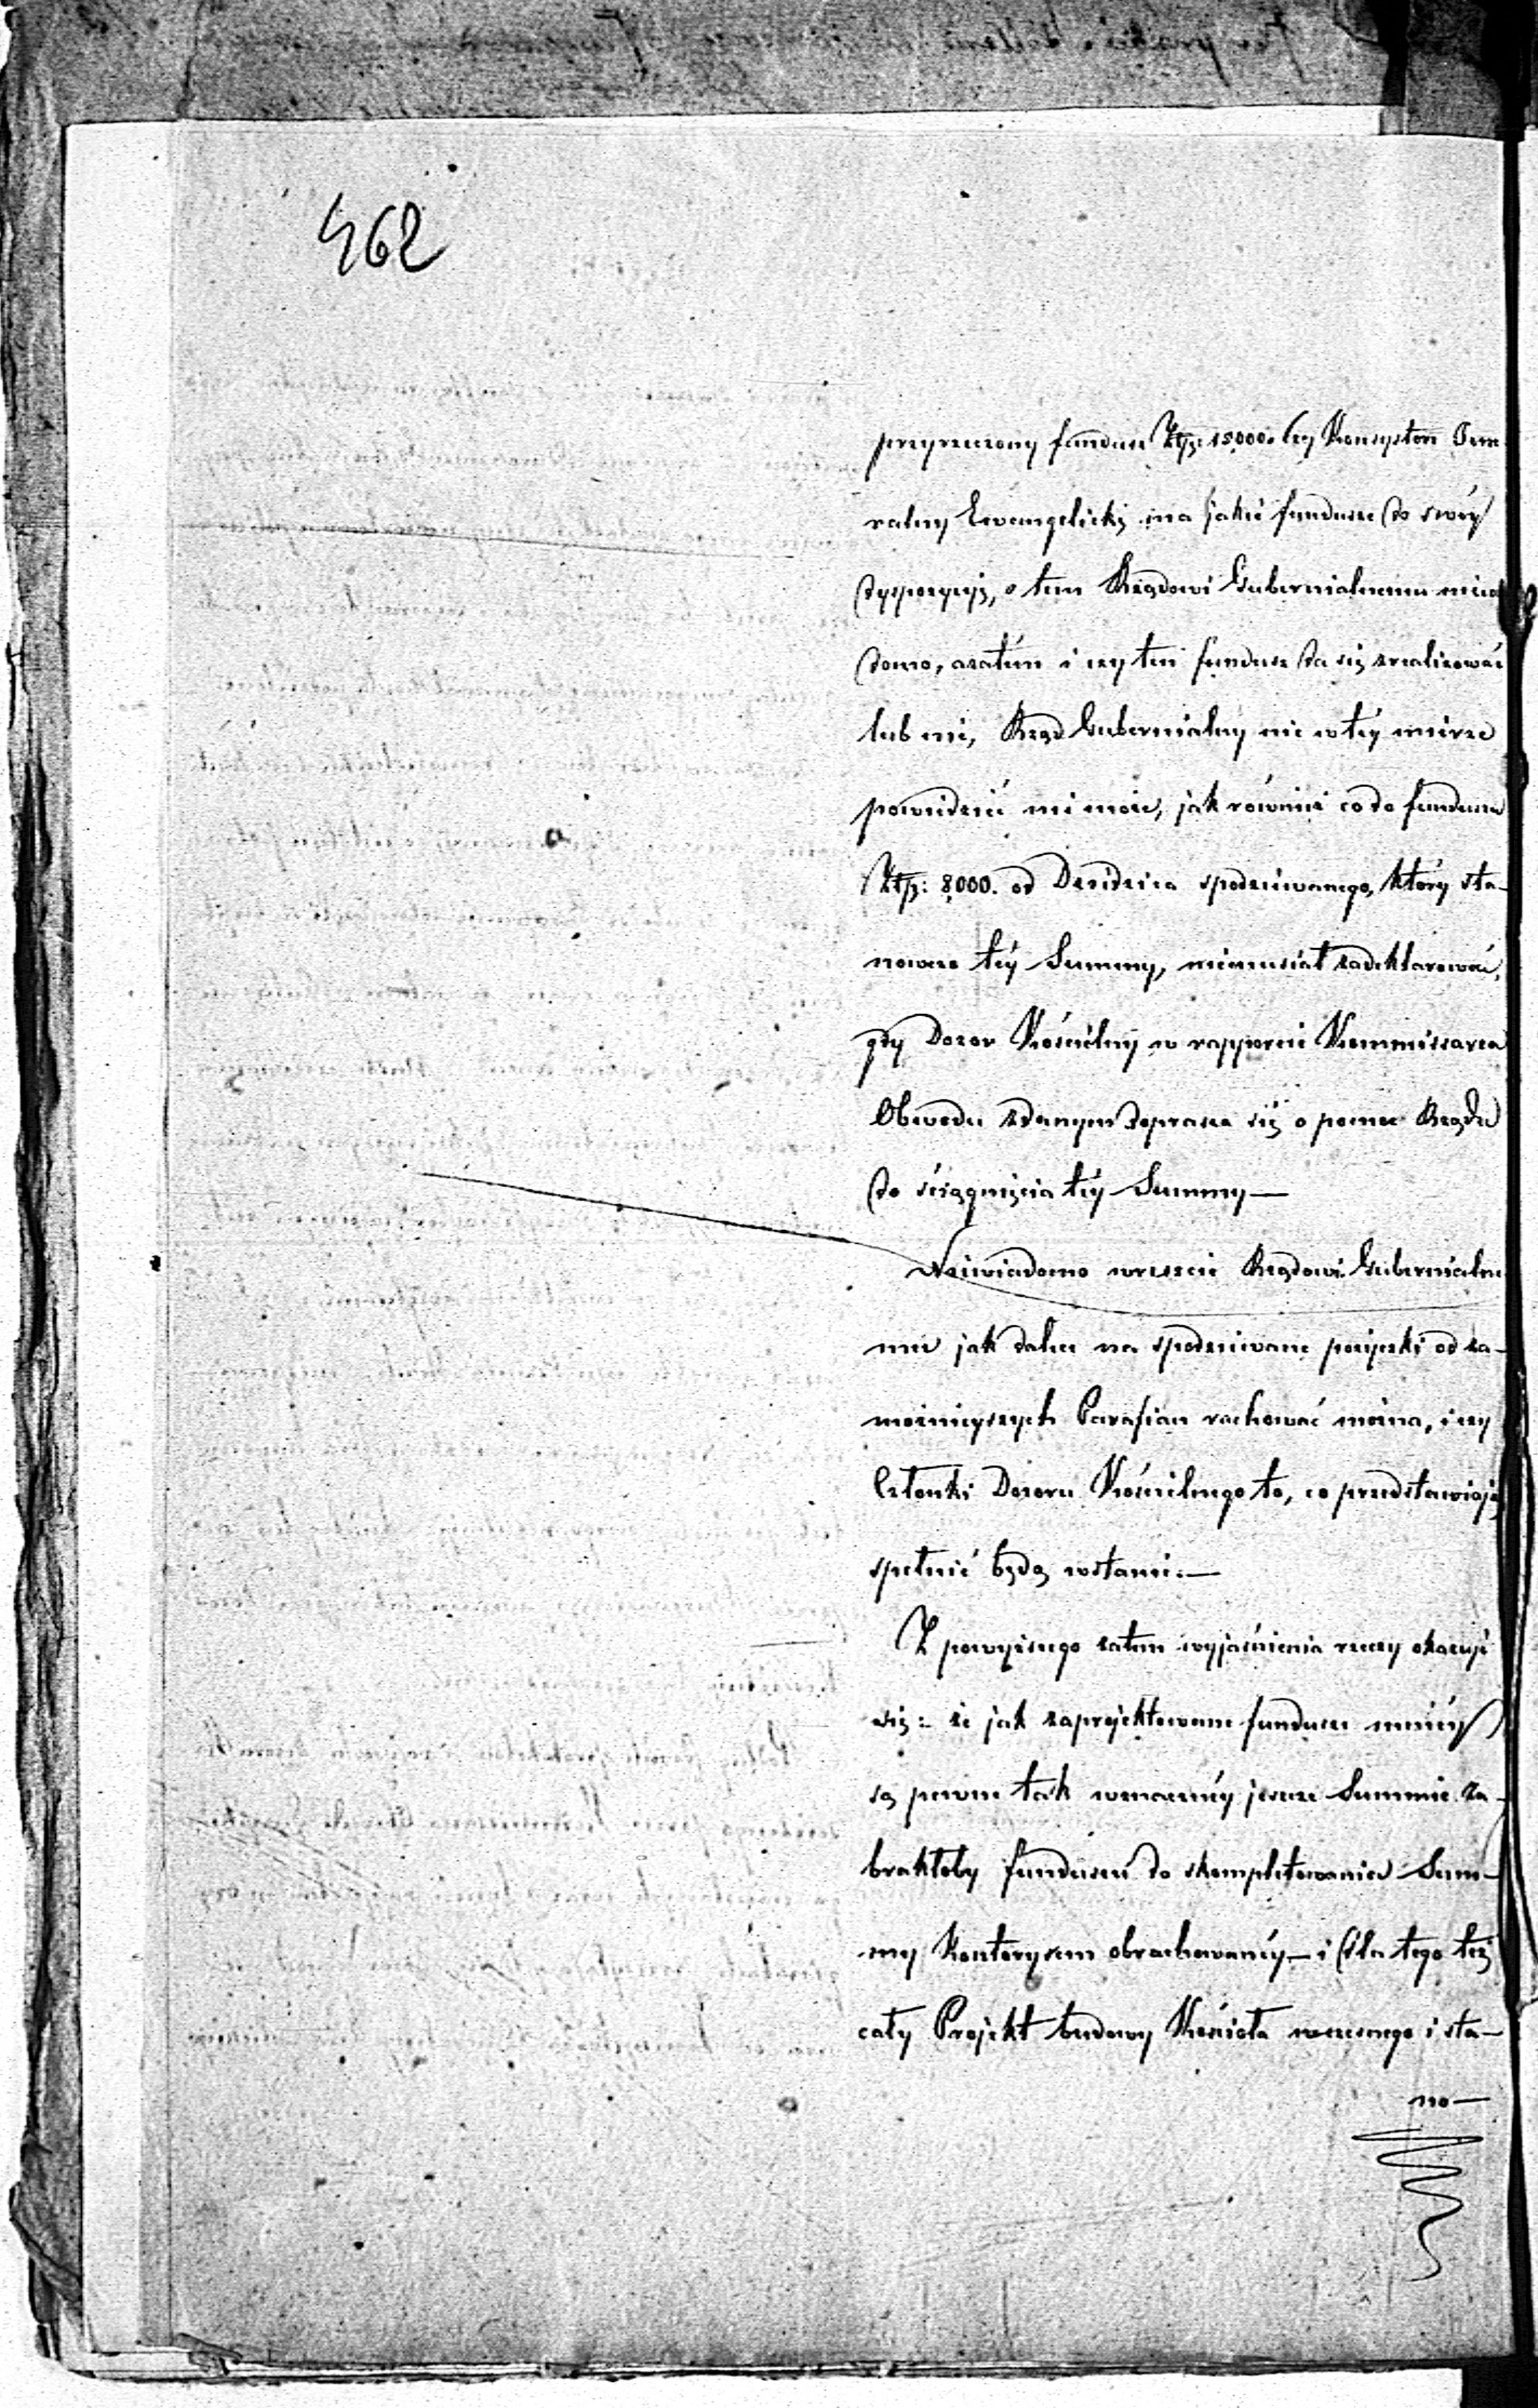 462
przyrzeczony fundusz Złp: 15000. Czy Konsystorz Jene
ralny Ewangelicki ma jakie fundusze do swéy
dyspozycyi, o tem Rządowi Gubernialnemu niewia
domo, azatém i czy ten fundusz da się zrealizować
lub nie, Rząd Gubernialny nic w téy mierze
powiedzieć nie może, jak równie co do funduszu
Złp: 8000. od Dziedzica spodziewanego, który sta-
nowczo téy Summy, niemusiał zadeklarować,
gdy Dozor Kościelny w rapporcie Kommissarza
Obwodu zdanym doprasza się o pomoc Rządu
do ściągnięcia téy Summy —
Niewiadomo wreszcie Rządowi Gubernialne
mu jak dalece na spodziewane pożyczki od za-
możnieyszych Parafian rachować można, i czy
Członki Dozoru Kościelnego to, co przedstawiają
spełnić będą wstanie. —
Z powyższego zatem wyjaśnienia rzeczy okazuje
się: że jak zaprojektowane fundusze mniéy
są pewne tak wznaczniéy jeszcze Summie za-
brakłoby funduszu do skompletowania Sum-
my Kosztorysem obrachowanéy — i dla tego też
cały Projekt budowy Kościoła wczesnego i sta-
no —